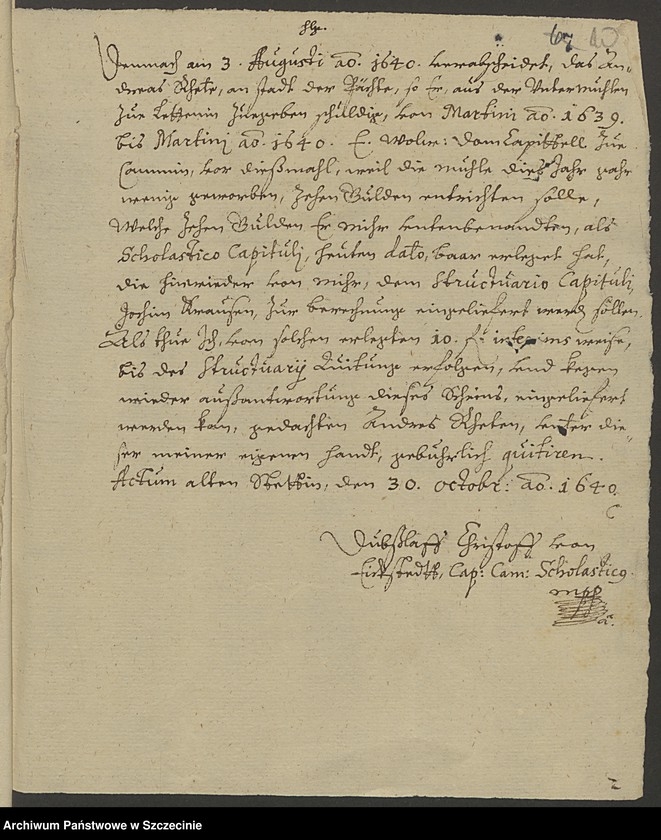 67 10
Demnach am 3. Augusti ao. 1640. verabscheidet, das An=
dreas Rhete, an stadt der Pächte, so Er, aus der Untermühlen
zur Lettenin zuegeben schuldig, von Martini ao. 1639.
bis Martini ao. 1640. E. Wolw: domCapittell zue
Cammin, vor dießmahl, weil die mühle dies Jahr gahr
wenig geworben, Zehen Gülden entrichten solle,
Welche Zehen Gulden Er mihr untenbenandten, als
Scholastico Capituli, heuten dato, baar erleget hat,
die hinwieder von mihr, dem Structuario Capituli,
Jochim Krausen, zur berechnung eingeliefert werden sollen.
Als thue Ich, von solchen erlegten 10. f. interims weise,
bis des Structuarij Quitung erfolgen, und kegen
wieder außantwortung dieses Scheins, eingeliefert
werden kan, gedachten Andres Rheten, unter die=
ser meiner eigenen handt, gebührlich quitiren.
Actum alten Stettin, den 30. octobr: ao. 1640.
Dubßlaff Christoff von
Eickstedt, Cap: Cam: Scholasticus
mpp
Archiwum Państwowe w Szczecinie